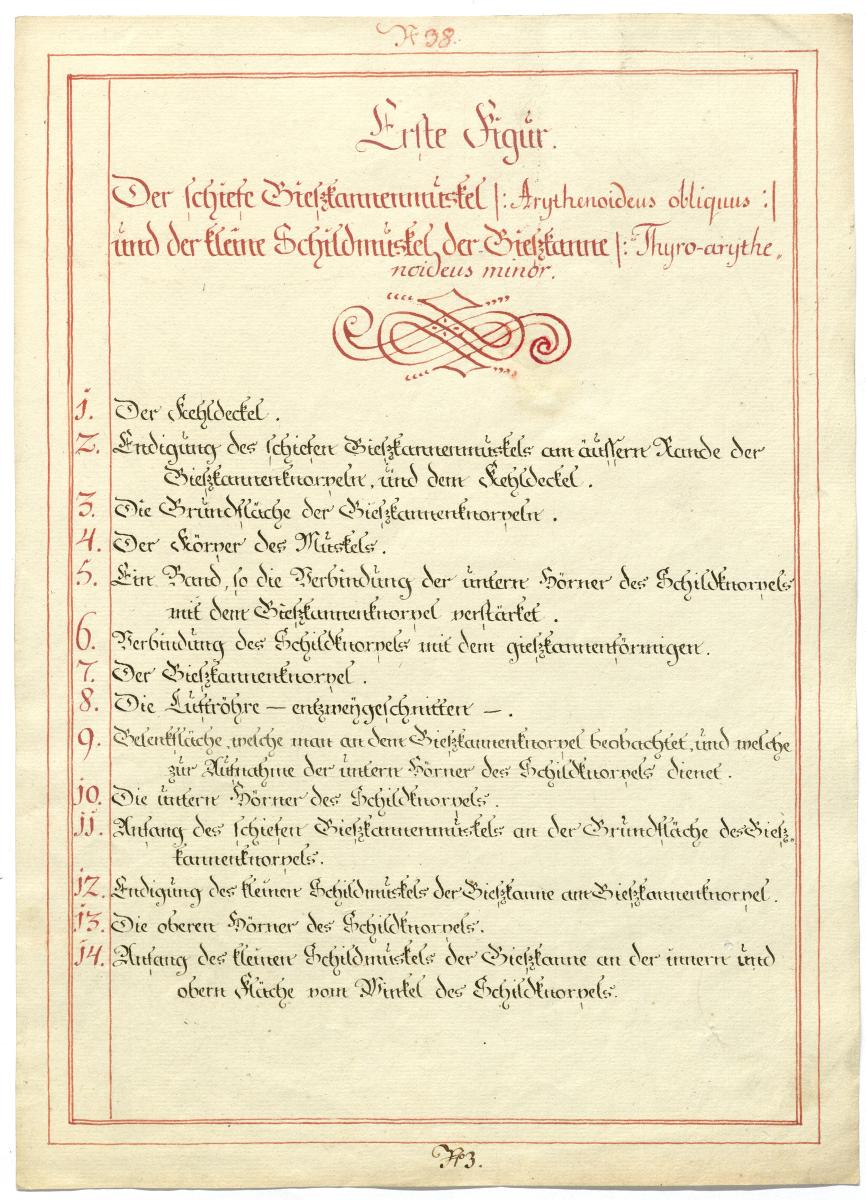 N° 38.
Erste Figur.
Der schiefe Gieſzkannenmuskel |: Arythenoideus obliquus :|
und der kleine Schildmuskel der Gieſzkanne |: Thyro-arythe„
noideus minor.
1. Der Kehldeckel.
2. Endigung des schiefen Gieſzkannenmuskels am äuſsern Rande der
Gieſzkannenknorpeln, und dem Kehldeckel.
3. Die Grundfläche der Gieſzkannenknorpeln.
4. Der Körper des Muskels.
5. Ein Band, so die Verbindung der untern Hörner des Schildknorpels
mit dem Gieſzkannenknorpel verstärket.
6. Verbindung des Schildknorpels mit dem gieſzkannenförmigen.
7. Der Gieſzkannenknorpel.
8. Die Luftröhre – entzweÿgeschnitten –.
9. Gelenkfläche, welche man an dem Gieſzkannenknorpel beobachtet, und welche
zur Aufnahme der untern Hörner des Schildknorpels dienet.
10. Die untern Hörner des Schildknorpels.
11. Anfang des schiefen Gieſzkannenmuskels an der Grundfläche des Gieſz„
kannenknorpels.
12. Endigung des kleinen Schildmuskels der Gieſzkanne am Gieſzkannenknorpel.
13. Die oberen Hörner des Schildknorpels.
14. Anfang des kleinen Schildmuskels der Gieſzkanne an der innern und
obern Fläche vom Winkel des Schildknorpels.
N° 3.